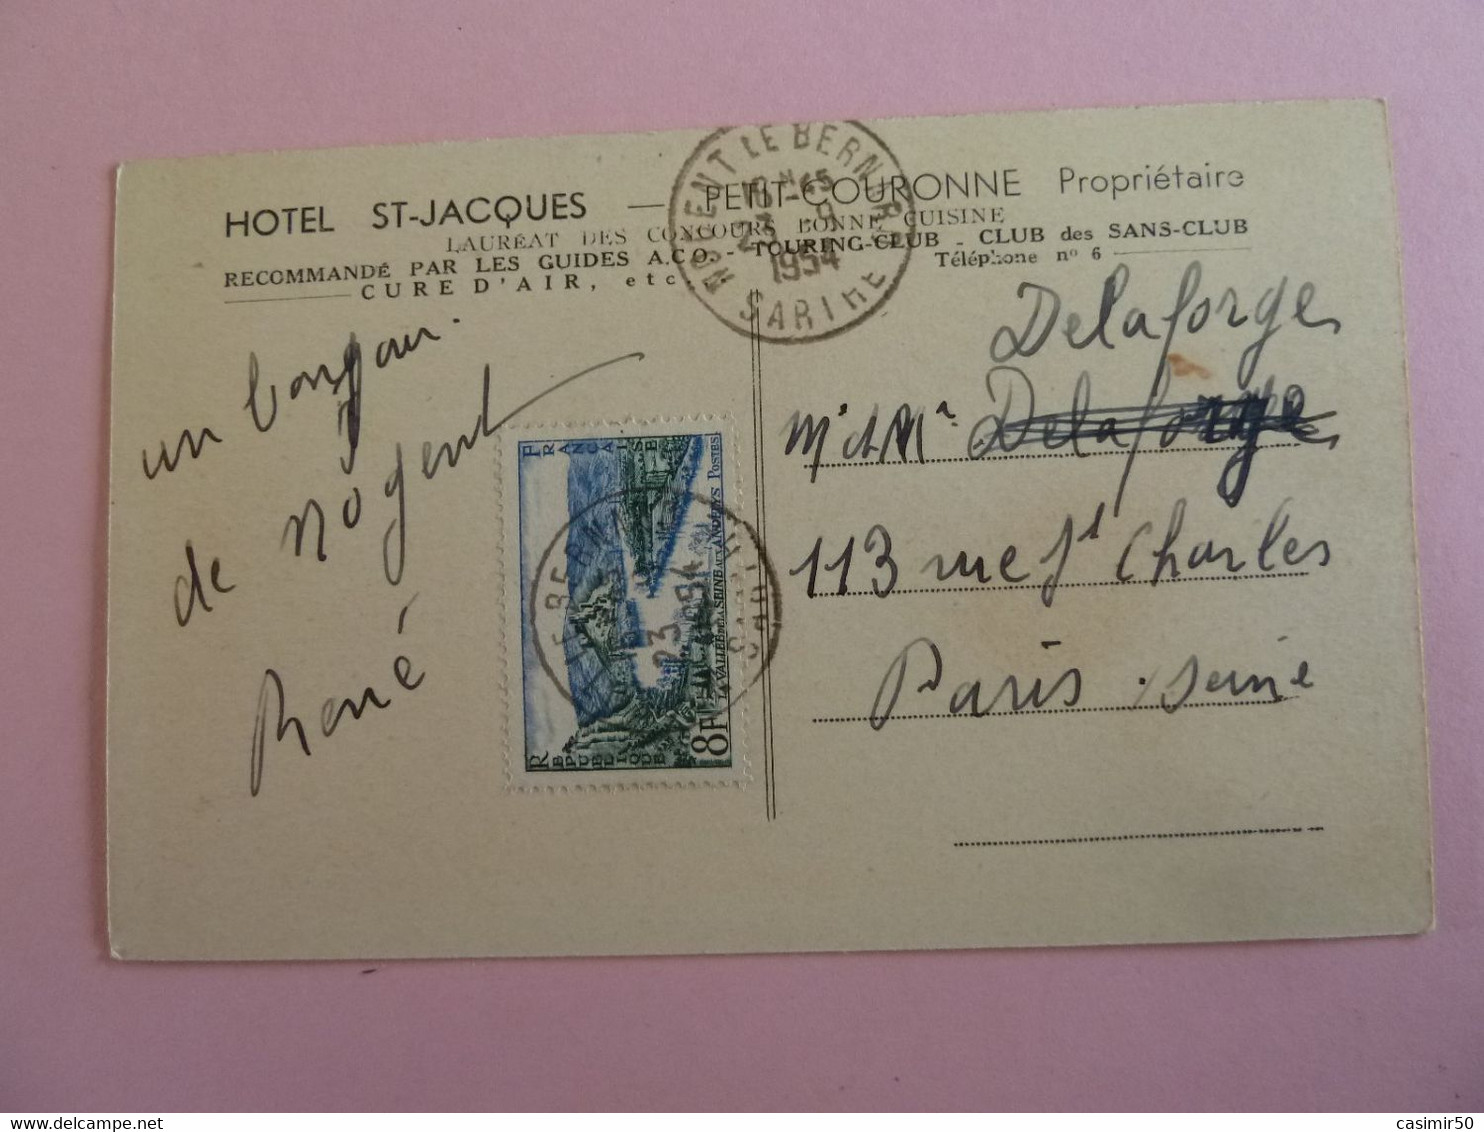 HOTEL ST-JACQUES — PETIT-COURONNE Propriétaire
LAURÉAT DES CONCOURS BONNE CUISINE
RECOMMANDÉ PAR LES GUIDES A.C.O. - TOURING-CLUB - CLUB des SANS-CLUB
CURE D'AIR, etc.
Téléphone nº 6
NOGENT LE BERNARD
23 9
1954
SARTHE
un bonjour
de Nogent
René
REPUBLIQUE FRANÇAISE
LA VALLÉE DE LA SEINE AUX ANDELYS POSTES
8F
LE BERNA
23
SARTHE
Delaforge
Mr et Me Delaforge
113 rue St Charles
Paris. Seine
casimir50